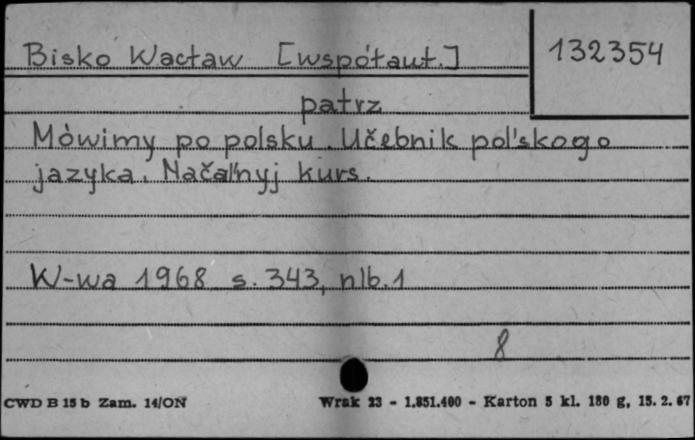 Bisko Wacław [współaut.]
132354
patrz
Mówimy po polsku. Učebnik pol'skogo
jazyka. Načal'nyj kurs.
W-wa 1968 s. 343, nlb. 1
8
CWD B 15 b Zam. 14/ON
Wrak 23 - 1.851.400 - Karton 5 kl. 180 g, 15. 2. 67